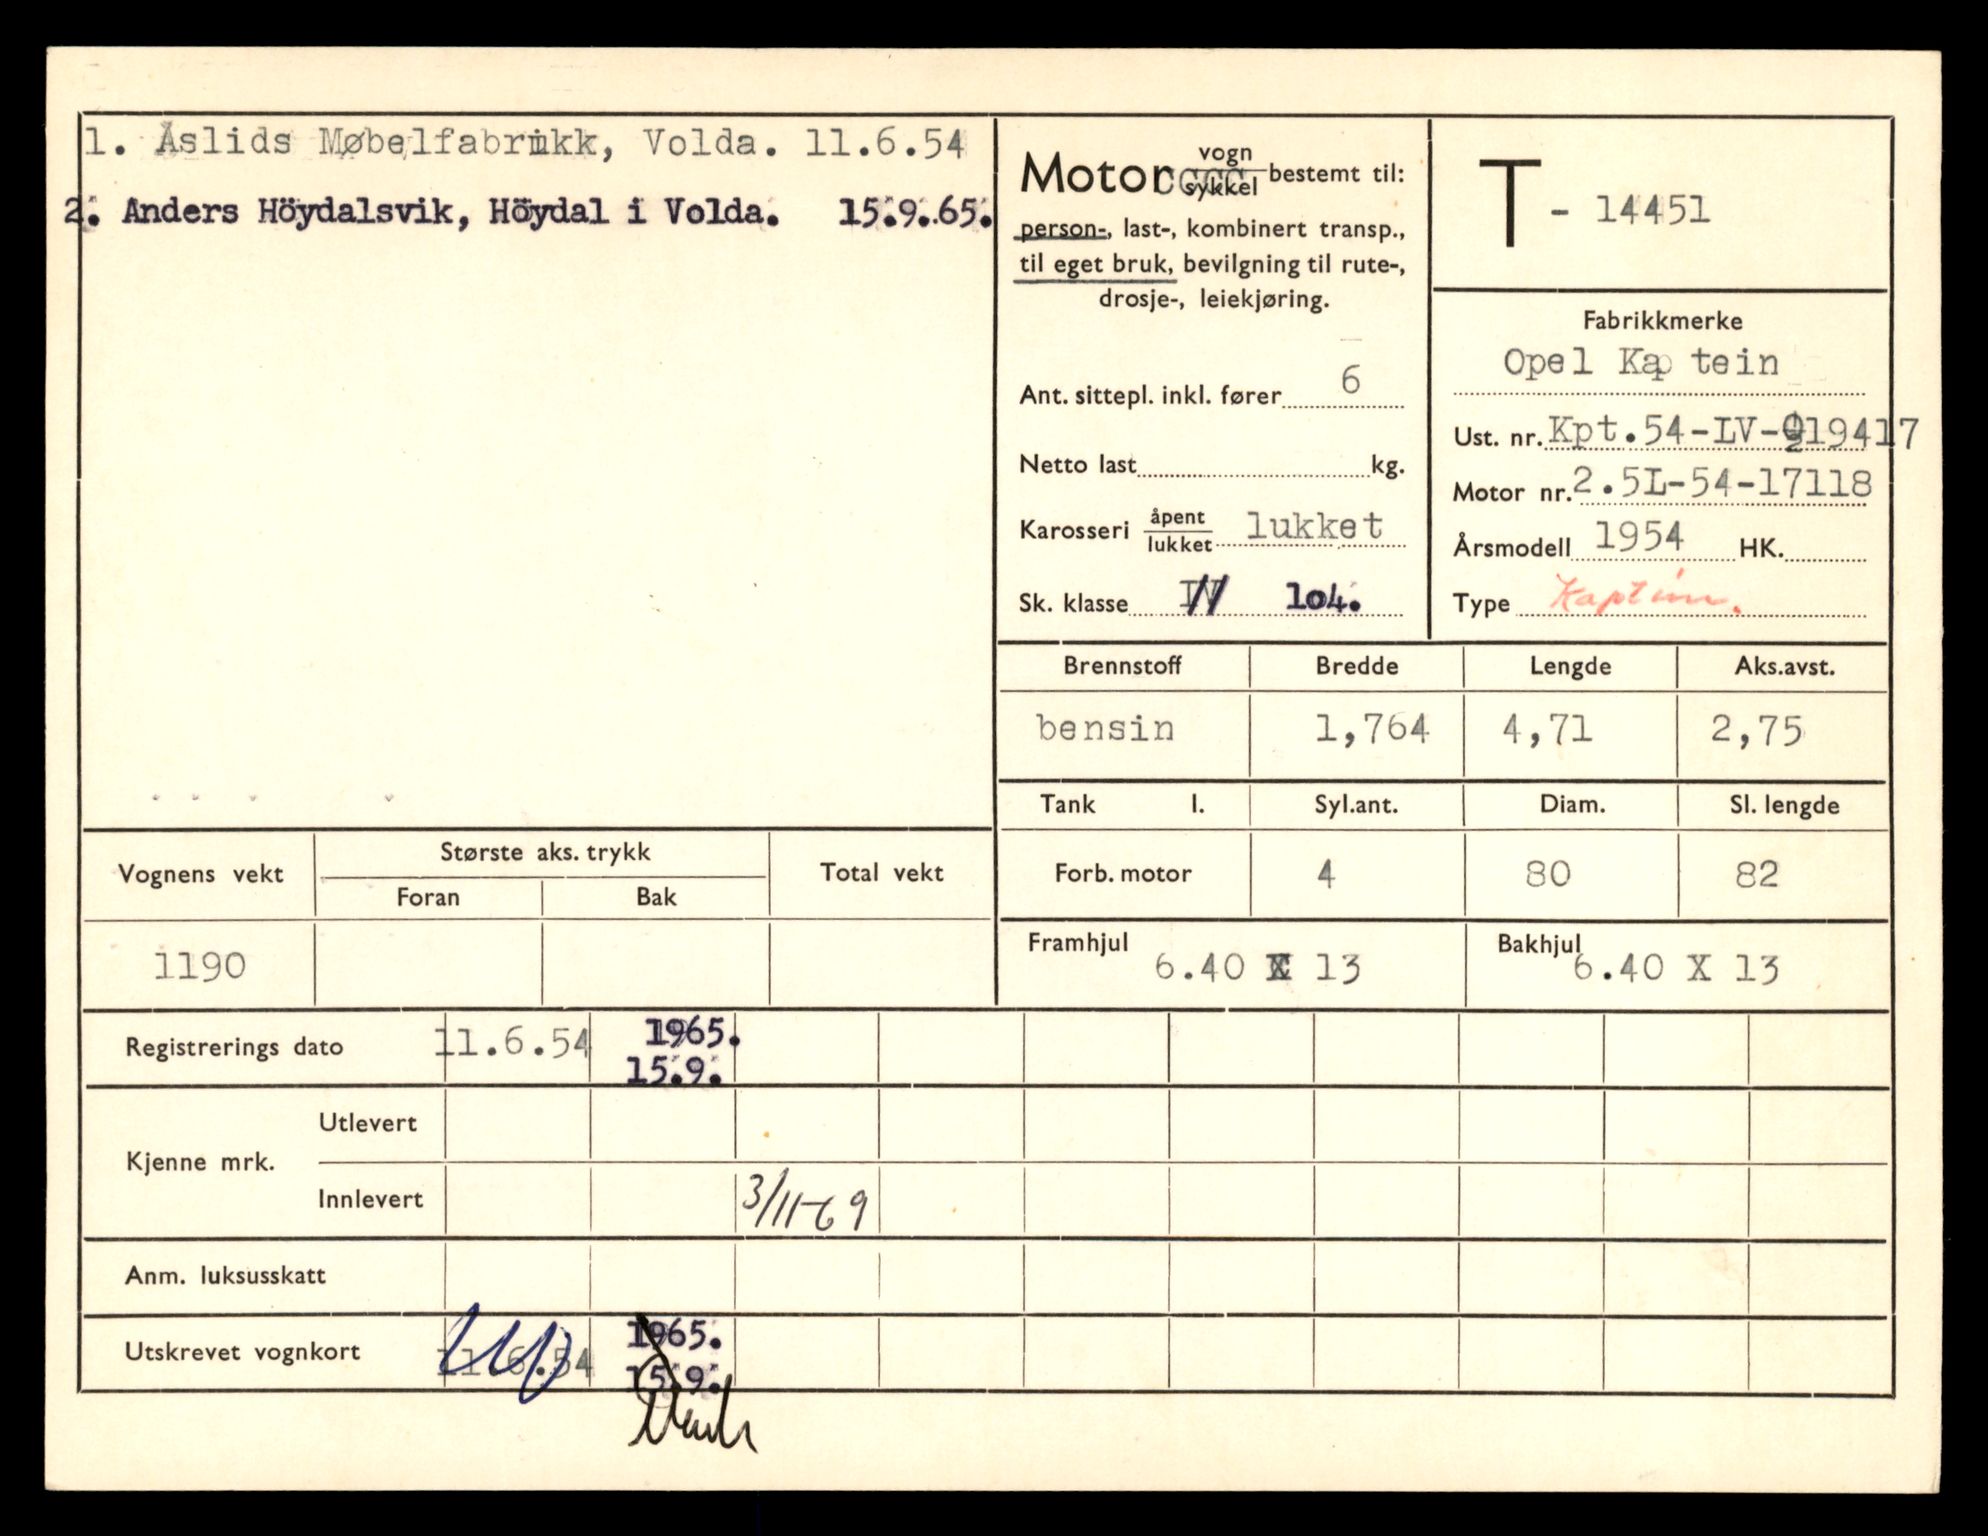 1. Åslids Møbelfabrikk, Volda. 11.6.54
2. Anders Höydalsvik, Höydal i Volda. 15.9.65.
Motor vogn/sykkel bestemt til:
person-, last-, kombinert transp.,
til eget bruk, bevilgning til rute-,
drosje-, leiekjøring.
Ant. sittepl. inkl. fører 6
Netto last kg.
Karosseri åpent/lukket lukket
Sk. klasse 104.
T - 14451
Fabrikkmerke
Opel Kap tein
Ust. nr. Kpt.54-LV-219417
Motor nr. 2.5L-54-17118
Årsmodell 1954 HK.
Type
Brennstoff Bredde Lengde Aks.avst.
bensin 1,764 4,71 2,75
Tank l. Syl.ant. Diam. Sl. lengde
Forb. motor 4 80 82
Framhjul 6.40 X 13 Bakhjul 6.40 X 13
Vognens vekt Største aks. trykk Total vekt
Foran Bak
1190
Registrerings dato 11.6.54 1965.
15.9.
Kjenne mrk. Utlevert
Innlevert 3/11-69
Anm. luksusskatt
Utskrevet vognkort 11.6.54 1965.
15.9.